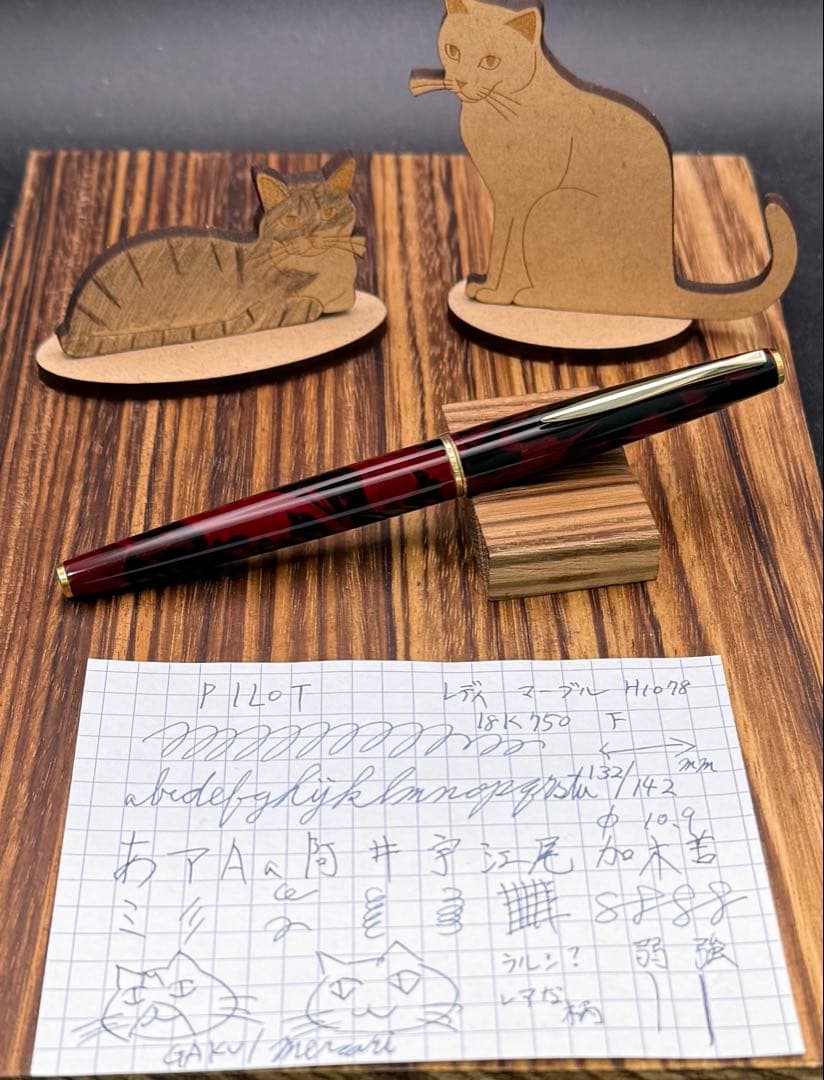 PILOT レディス マーブル H1078
18K750 F
mm
abcdefghijklmnopqrstu 132/142
φ 10.9
あ ア A a 阿 井 宇 江 尾 加 木
8 8 8 8
ラルシ? 弱 強
レアな柄
GAKU/mercari